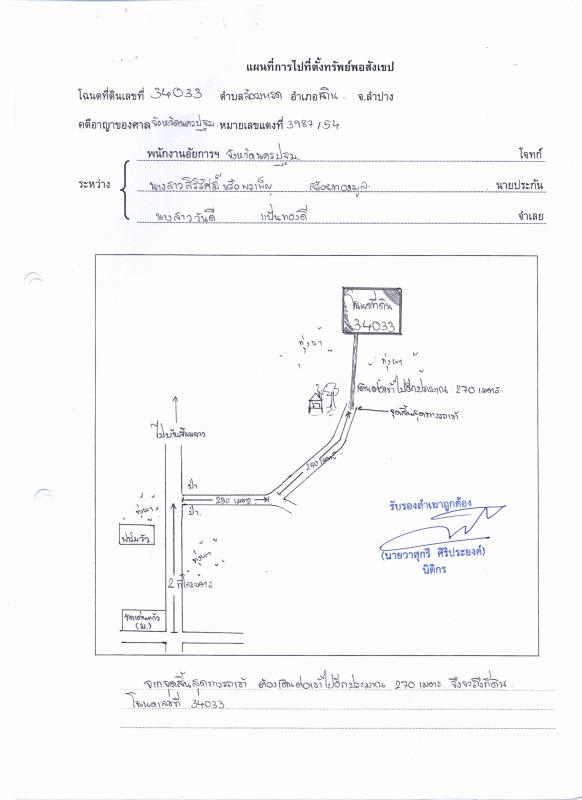 แผนที่การไปที่ตั้งทรัพย์พอสังเขป
โฉนดที่ดินเลขที่ 34033 ตำบลล้อมแรด อำเภอเถิน จ.ลำปาง
คดีอาญาของศาลจังหวัดนครปฐม หมายเลขแดงที่ 3987/54
พนักงานอัยการฯ จังหวัดนครปฐม โจทก์
ระหว่าง
นางสาวสิริรัศมิ์ หรือพรเพ็ญ สร้อยทองมูล นายประกัน
นางสาววันดี แป้นทองดี จำเลย
โฉนดที่ดิน
34033
ทุ่งนา
ทุ่งนา
เดินต่อเข้าไปอีกประมาณ 270 เมตร
จุดสิ้นสุดทางรถเข้า
250 เมตร
ป่า
250 เมตร
ป่า
ทุ่งนา
ฟาร์มวัว
ทุ่งนา
2 กิโลเมตร
(ม.)
รับรองสำเนาถูกต้อง
(นายวาสุกรี ศิริประยงค์)
นิติกร
จากจุดสิ้นสุดทางรถเข้า ต้องเดินต่อเข้าไปอีกประมาณ 270 เมตร จึงจะถึงที่ดิน
โฉนดเลขที่ 34033